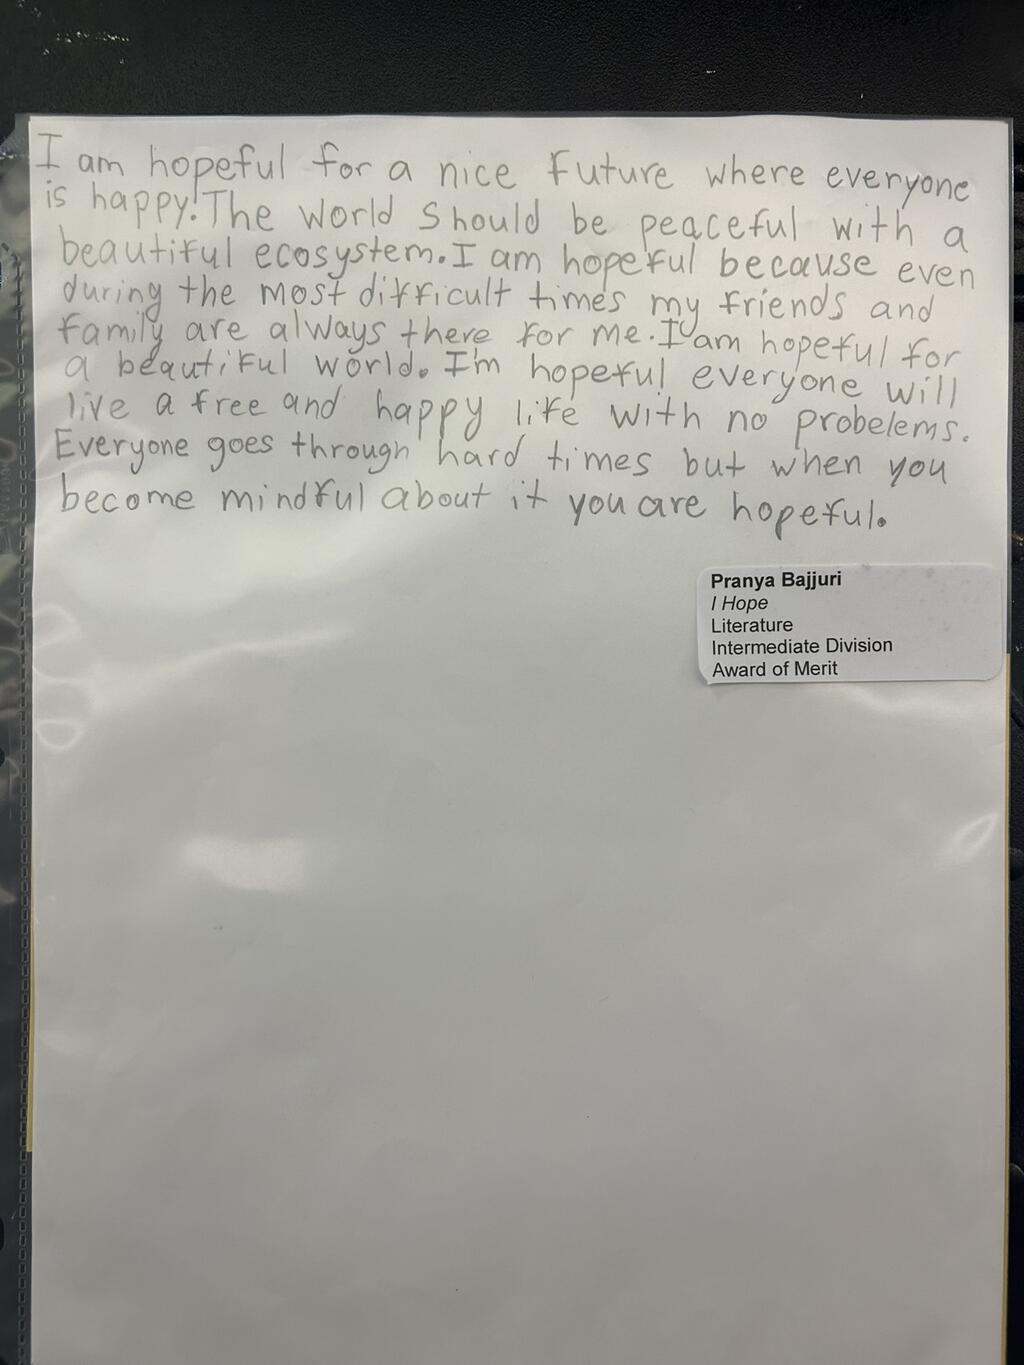 I am hopeful for a nice future where everyone
is happy! The world should be peaceful with a
beautiful ecosystem. I am hopeful because even
during the most difficult times my friends and
family are always there for me. I am hopeful for
a beautiful world. I'm hopeful everyone will
live a free and happy life with no probelems.
Everyone goes through hard times but when you
become mindful about it you are hopeful.
Pranya Bajjuri
I Hope
Literature
Intermediate Division
Award of Merit